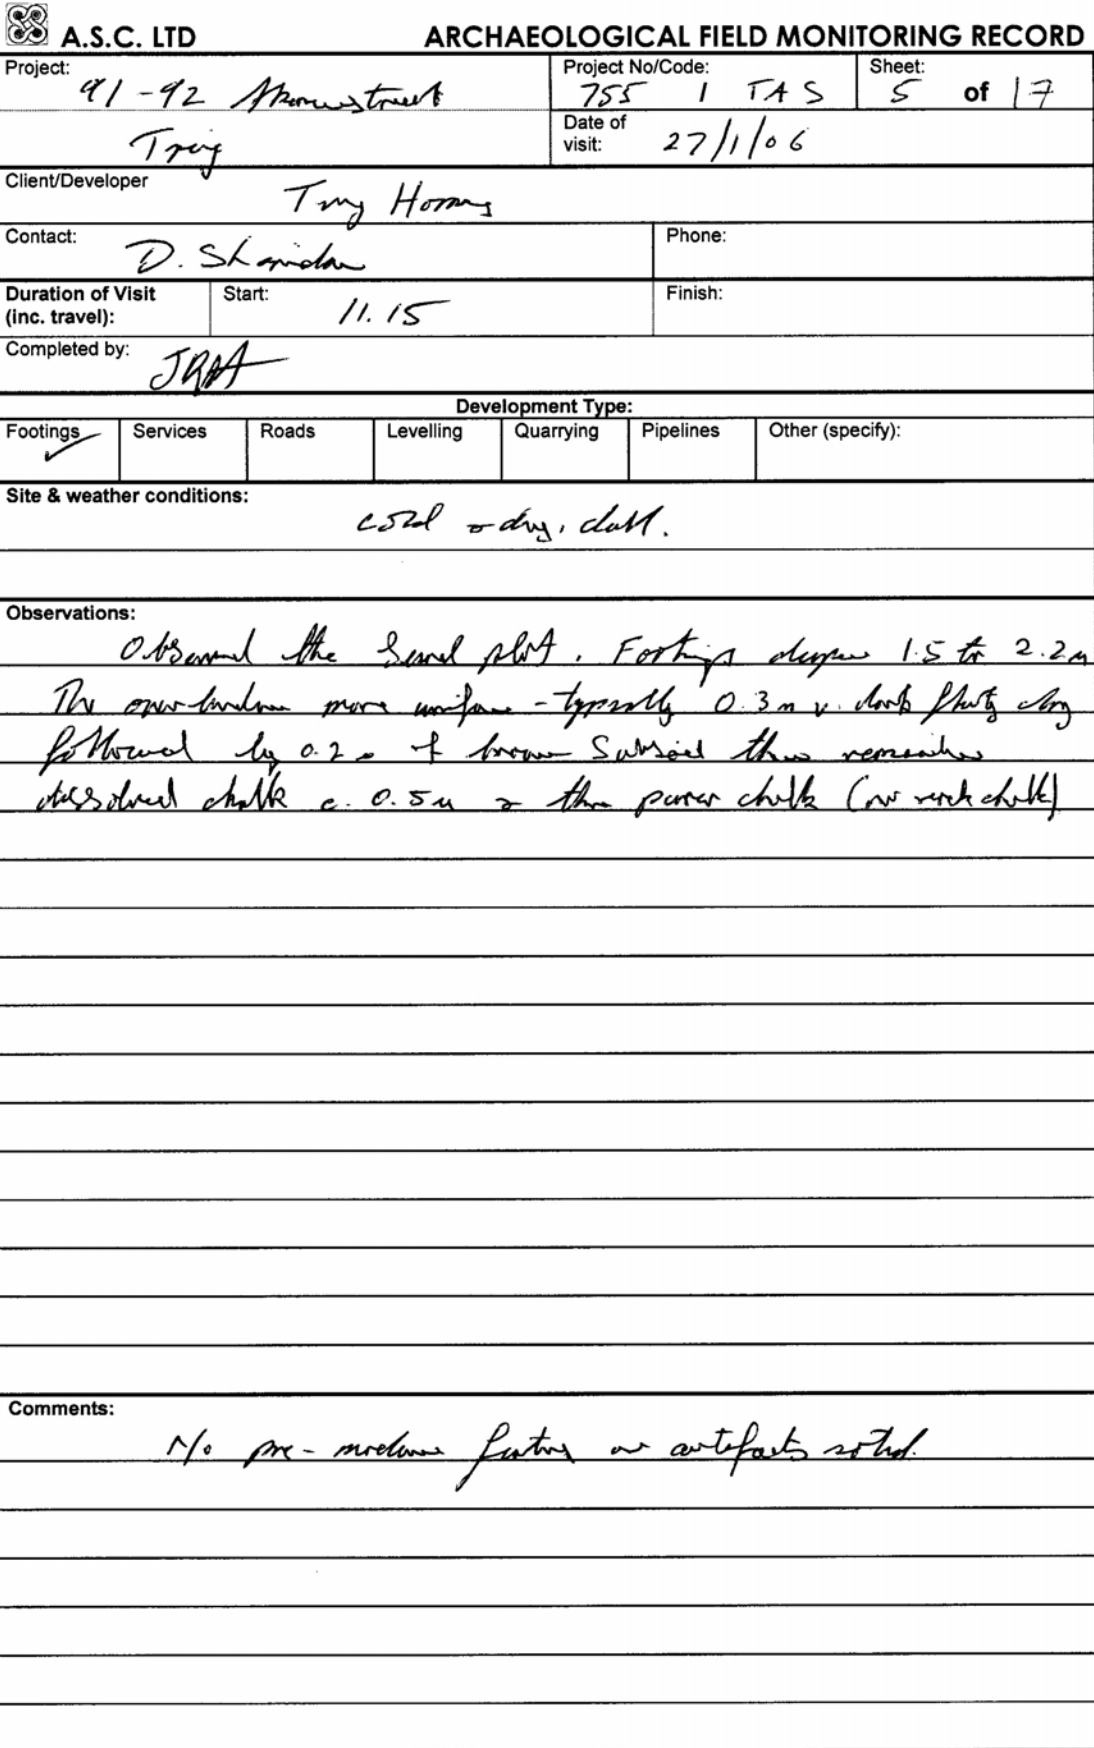 A.S.C. LTD
ARCHAEOLOGICAL FIELD MONITORING RECORD
Project: 91-92 Akeman street
Tring
Project No/Code: 755 / TAS
Sheet: 5 of 17
Date of visit: 27/1/06
Client/Developer
Tring Homes
Contact: D. Sheridan
Phone:
Duration of Visit (inc. travel):
Start: 11.15
Finish:
Completed by:
Development Type:
Footings ✓
Services
Roads
Levelling
Quarrying
Pipelines
Other (specify):
Site & weather conditions:
cold & dry, dull.
Observations:
Observed the plot. Footings deeper 1.5 to 2.2m
The overburden more uniform - typically 0.3m v. dark clay
followed by 0.2m of brown subsoil then
dissolved chalk c. 0.5m & then purer chalk (not chalk)
Comments:
No pre-modern features or artefacts noted.